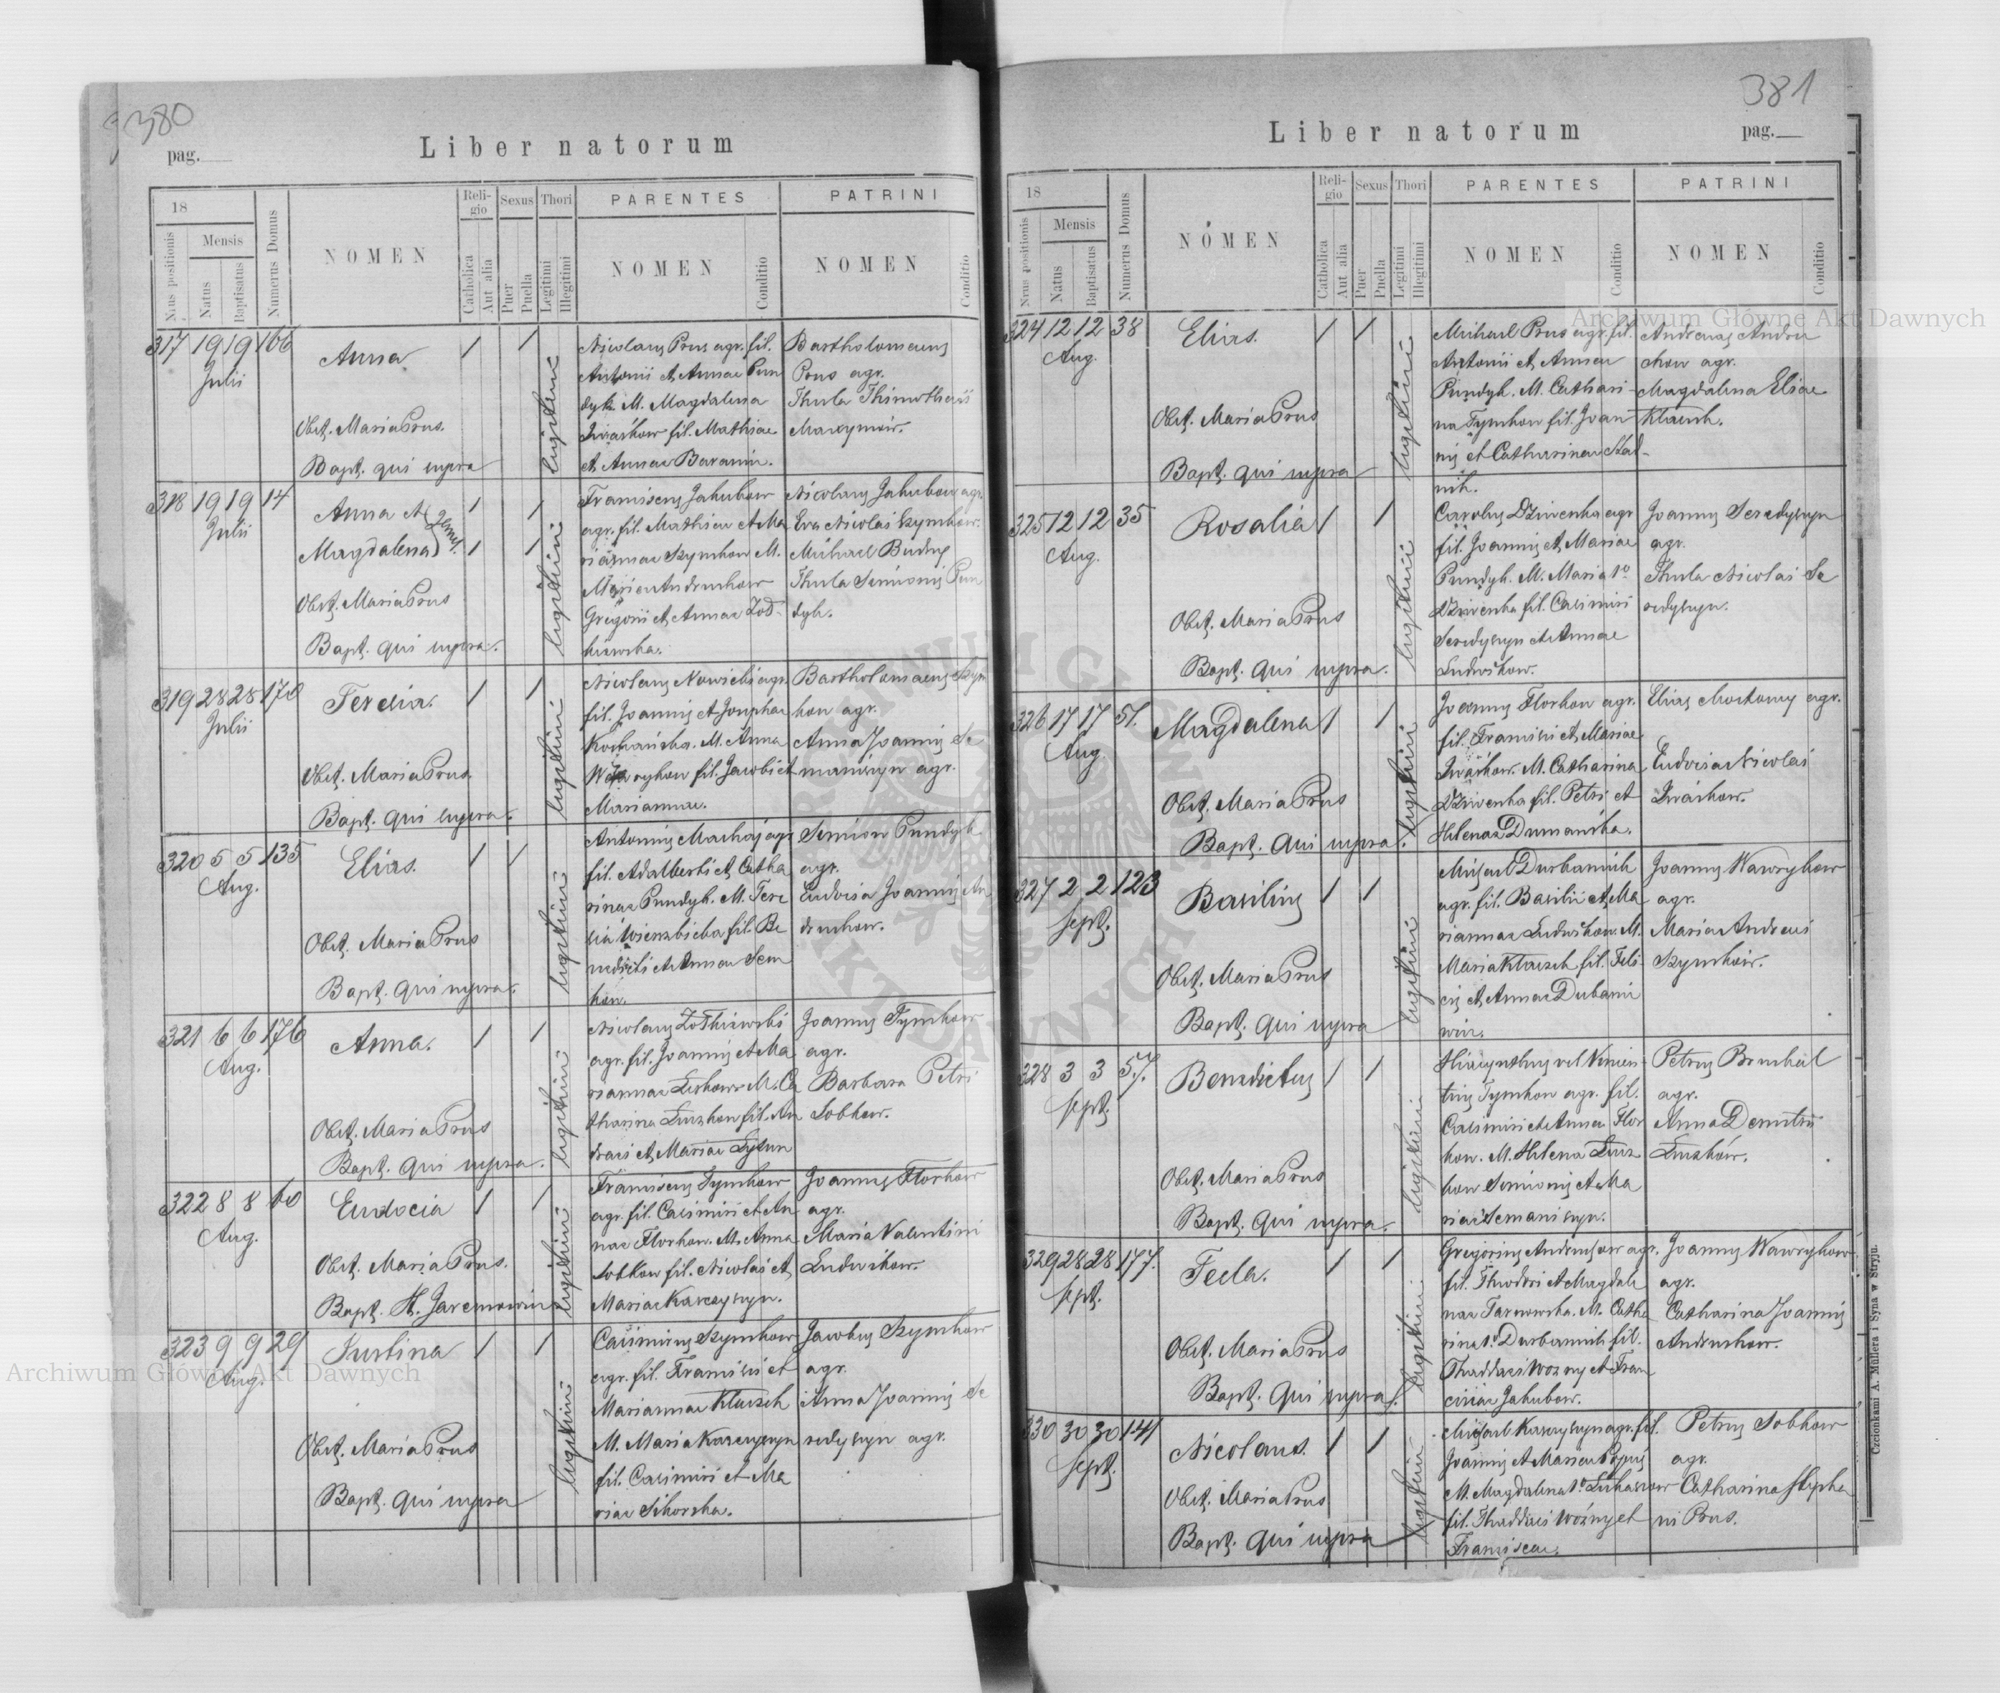 380
Liber natorum
pag.
18
Nrus positionis
Mensis
Natus
Baptisatus
Numerus Domus
NOMEN
Religio
Catholica
Aut alia
Sexus
Puer
Puella
Thori
Legitimi
Illegitimi
PARENTES
NOMEN
Conditio
PATRINI
NOMEN
Conditio
317 19 19 166
Julii
Anna
Obst. Maria Prus.
Bapt. qui supra
legitimi
Nicolaus Prus agr. fil.
Antonii et Annae Pun
dyk. M. Magdalena
Iwaśkow fil. Mathiae
et Annae
Bartholomaeus
Prus agr.
Thecla
318 19 19 14
Julii
Anna et
Magdalena
Obst. Maria Prus
Bapt. qui supra.
legitimi
Franciscus Jakubow
agr. fil. Mathiae et Ma
riannae Szymkow M.
Maria Andruchow
Gregorii et Annae
Nicolaus Jakubow agr.
Eva Nicolai Szymkow.
Michael
Thecla Simionis Pun
dyk.
319 28 28 170
Julii
Teresia.
Obst. Maria Prus
Bapt. qui supra.
legitimi
Nicolaus Nowicki agr.
fil. Joannis et Josephae
M. Anna
Wawrykow fil. Jacobi et
Mariannae.
Bartholomaeus Szym
kow agr.
Anna Joannis Se
maniszyn agr.
320 5 5 135
Aug.
Elias.
Obst. Maria Prus
Bapt. qui supra.
legitimi
Antonius Machaj agr.
fil. Adalberti et Catha
rinae Pundyk. M. Tere
sia Wierzbicka fil. Be
nedicti et Annae Sem
kow.
Simion Pundyk
agr.
Eudocia Joannis An
druchow.
321 6 6 176
Aug.
Anna.
Obst. Maria Prus
Bapt. qui supra.
legitimi
Nicolaus
agr. fil. Joannis et Ma
riannae M. Ca
tharina fil. An
dreae et Mariae
Joannes Tymkow
agr.
Barbara Petri
Sobkow.
322 8 8 60
Aug.
Eudocia
Obst. Maria Prus.
Bapt. H. Jaremowicz
legitimi
Franciscus Tymkow
agr. fil. Casimiri et An
nae Florkow. M. Anna
Sobkow fil. Nicolai et
Mariae Karczyszyn.
Joannes Florkow
agr.
Maria Valentini
Ludwikow.
323 9 9 29
Aug.
Justina
Obst. Maria Prus
Bapt. qui supra
legitimi
Casimirus Szymkow
agr. fil. Francisci et
Mariannae Klaczek
M. Maria Karczyszyn
fil. Casimiri et Ma
riae Sikorska.
Jacobus Szymkow
agr.
Anna Joannis Se
redyszyn agr.
381
Liber natorum
pag.
18
Nrus positionis
Mensis
Natus
Baptisatus
Numerus Domus
NOMEN
Religio
Catholica
Aut alia
Sexus
Puer
Puella
Thori
Legitimi
Illegitimi
PARENTES
NOMEN
Conditio
PATRINI
NOMEN
Conditio
324 12 12 38
Aug.
Elias.
Obst. Maria Prus
Bapt. qui supra
legitimi
Michael Prus agr. fil.
Antonii et Annae
Pundyk. M. Cathari
na Tymkow fil. Joan
nis et Catharinae
Andreas Andru
chow agr.
Magdalena Eliae
325 12 12 35
Aug.
Rosalia
Obst. Maria Prus
Bapt. qui supra.
legitimi
Carolus Dziwenka agr
fil. Joannis et Mariae
Pundyk. M. Maria 1º
Dziwenka fil. Casimiri
Seredyszyn et Annae
Ludwikow.
Joannes Seredyszyn
agr.
Thecla Nicolai Se
redyszyn.
326 17 17 51.
Aug
Magdalena
Obst. Maria Prus
Bapt. qui supra.
legitimi
Joannes Florkow agr.
fil. Francisci et Mariae
Iwaśkow. M. Catharina
Dziwenka fil. Petri et
Helenae Dumańska.
Elias agr.
Eudocia Nicolai
Iwaśkow.
327 2 2 123
Sept.
Basilius
Obst. Maria Prus
Bapt. qui supra
legitimi
Michael Durbaniuk
agr. fil. Basilii et Ma
riannae Ludwikow. M.
Maria Klaczek fil. Feli
cis et Annae
Joannes Wawrykow
agr.
Maria Andreae
Szymkow.
328 3 3 57.
Sept.
Benedictus
Obst. Maria Prus
Bapt. qui supra.
legitimi
Hiacynthus vel Vincen
tius Tymkow agr. fil.
Casimiri et Annae Flor
kow. M. Helena
Simionis et Ma
riae Semaniszyn.
Petrus
agr.
Anna Demitrii
329 28 28 177.
Sept.
Tecla.
Obst. Maria Prus
Bapt. qui supra.
legitimi
Gregorius Andruchow agr.
fil. Theodori et Magdale
nae Tarnowska. M. Catha
rina 1º Durbaniuk fil.
Thaddaei Woźny et Fran
ciscae Jakubow.
Joannes Wawrykow
agr.
Catharina Joannis
Andruchow.
330 30 30 141
Sept.
Nicolaus.
Obst. Maria Prus
Bapt. qui supra
legitimi
Michael Karczyszyn agr. fil.
Joannis et Mariae
M. Magdalena 1º
fil. Thaddaei Woźny et
Franciscae.
Petrus Sobkow
agr.
Catharina Stepha
ni Prus.
Czcionkami A. Müllera i Syna w Stryju.
Archiwum Główne Akt Dawnych
Archiwum Główne Akt Dawnych
ARCHIWUM GŁÓWNE AKT DAWNYCH